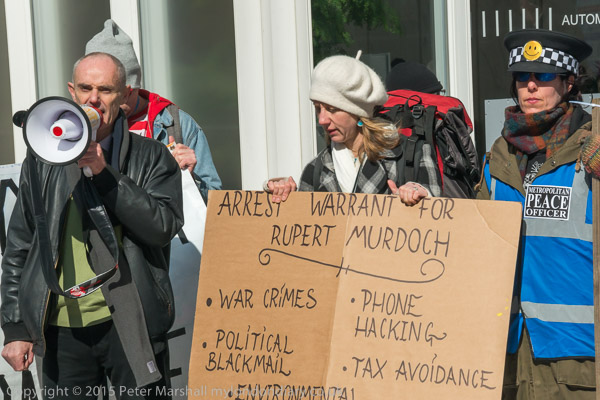 AUTOM
ARREST WARRANT FOR
RUPERT MURDOCH
• WAR CRIMES
• POLITICAL
BLACKMAIL
• ENVIRONMENTAL
• PHONE
HACKING
• TAX AVOIDANCE
METROPOLITAN
PEACE
OFFICER
Copyright © 2015 Peter Marshall